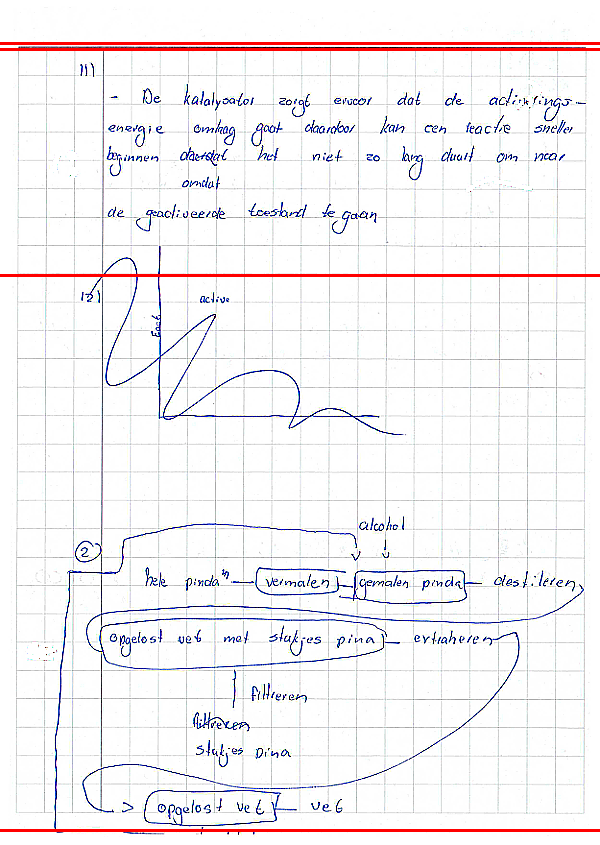 11)
- De katalysator zorgt ervoor dat de activerings-
energie omlaag gaat daardoor kan een reactie sneller
beginnen doordat het niet zo lang duurt om naar
omdat
de geactiveerde toestand te gaan
12)
active
2
alcohol
hele pinda's vermalen gemalen pinda destileren
opgelost vet met stukjes pina extraheren
filtreren
filtreren
stukjes pina
opgelost vet vet